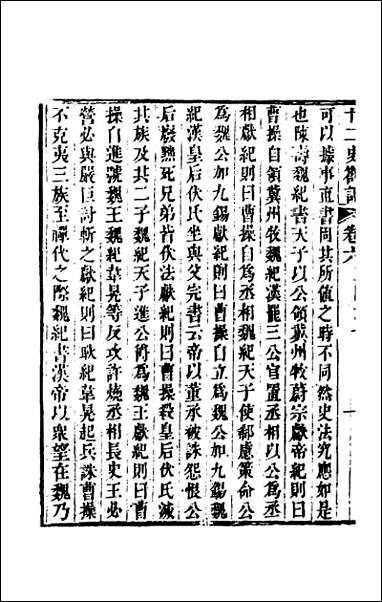 廿二史劄記 卷六
可以據事直書固其所值之時不同然史法究應如是
也陳壽魏紀書天子以公領冀州牧蔚宗獻帝紀則曰
曹操自領冀州牧魏紀漢罷三公官置丞相以公為丞
相獻紀則曰曹操自為丞相魏紀天子使郗慮策命公
為魏公加九錫獻紀則曰曹操自立為魏公加九錫魏
紀漢皇后伏氏坐與父完書云帝以董承被誅怨恨公
后廢黜死兄弟皆伏法獻紀則曰曹操殺皇后伏氏滅
其族及其二子魏紀天子進公爵為魏王獻紀則曰曹
操自進號魏王魏紀韋晃等反攻許燒丞相長史王必
營必與嚴匡討斬之獻紀則曰耿紀韋晃起兵誅曹操
不克夷三族至禪代之際魏紀書漢帝以眾望在魏乃